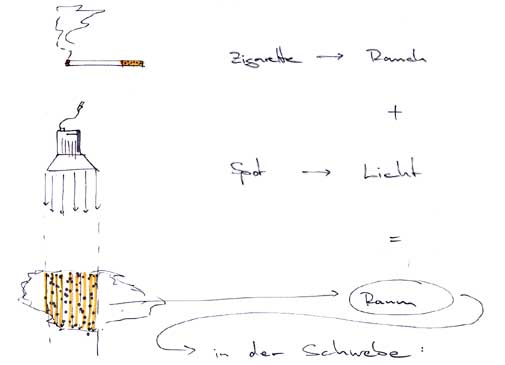 Zigarette → Rauch
+
Spot → Licht
=
Raum
in der Schwebe: